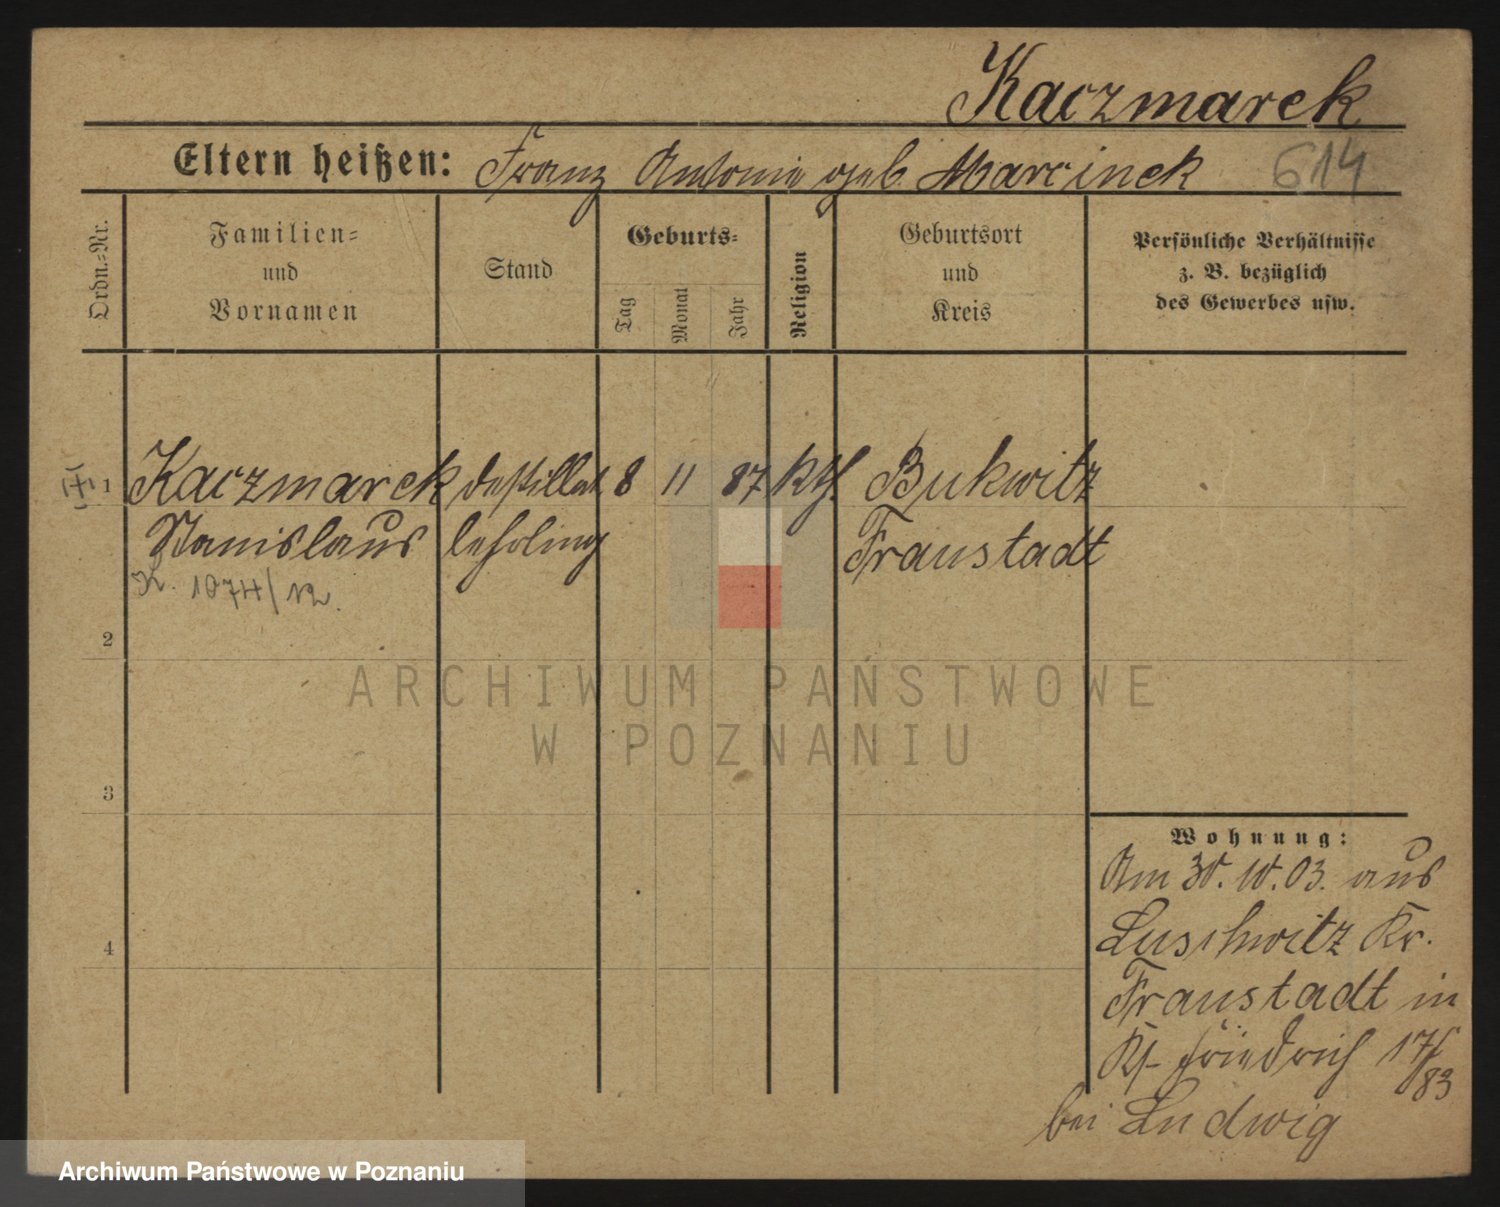 Kaczmarek
Eltern heißen: Franz Antonie geb. Marcinek 614
Ordn.-Nr.
Familien-
und
Vornamen
Stand
Geburts-
Tag
Monat
Jahr
Religion
Geburtsort
und
Kreis
Persönliche Verhältnisse
z. B. bezüglich
des Gewerbes usw.
1 Kaczmarek Destillat. 8 11 87 kth Bukwitz
Stanislaus lehrling Fraustadt
K. 1074/12.
2
3
4
Wohnung:
Am 30.10.03. aus
Luschwitz Kr.
Fraustadt in
Ks. Friedrich 17/83
bei Ludwig
ARCHIWUM PAŃSTWOWE
W POZNANIU
Archiwum Państwowe w Poznaniu